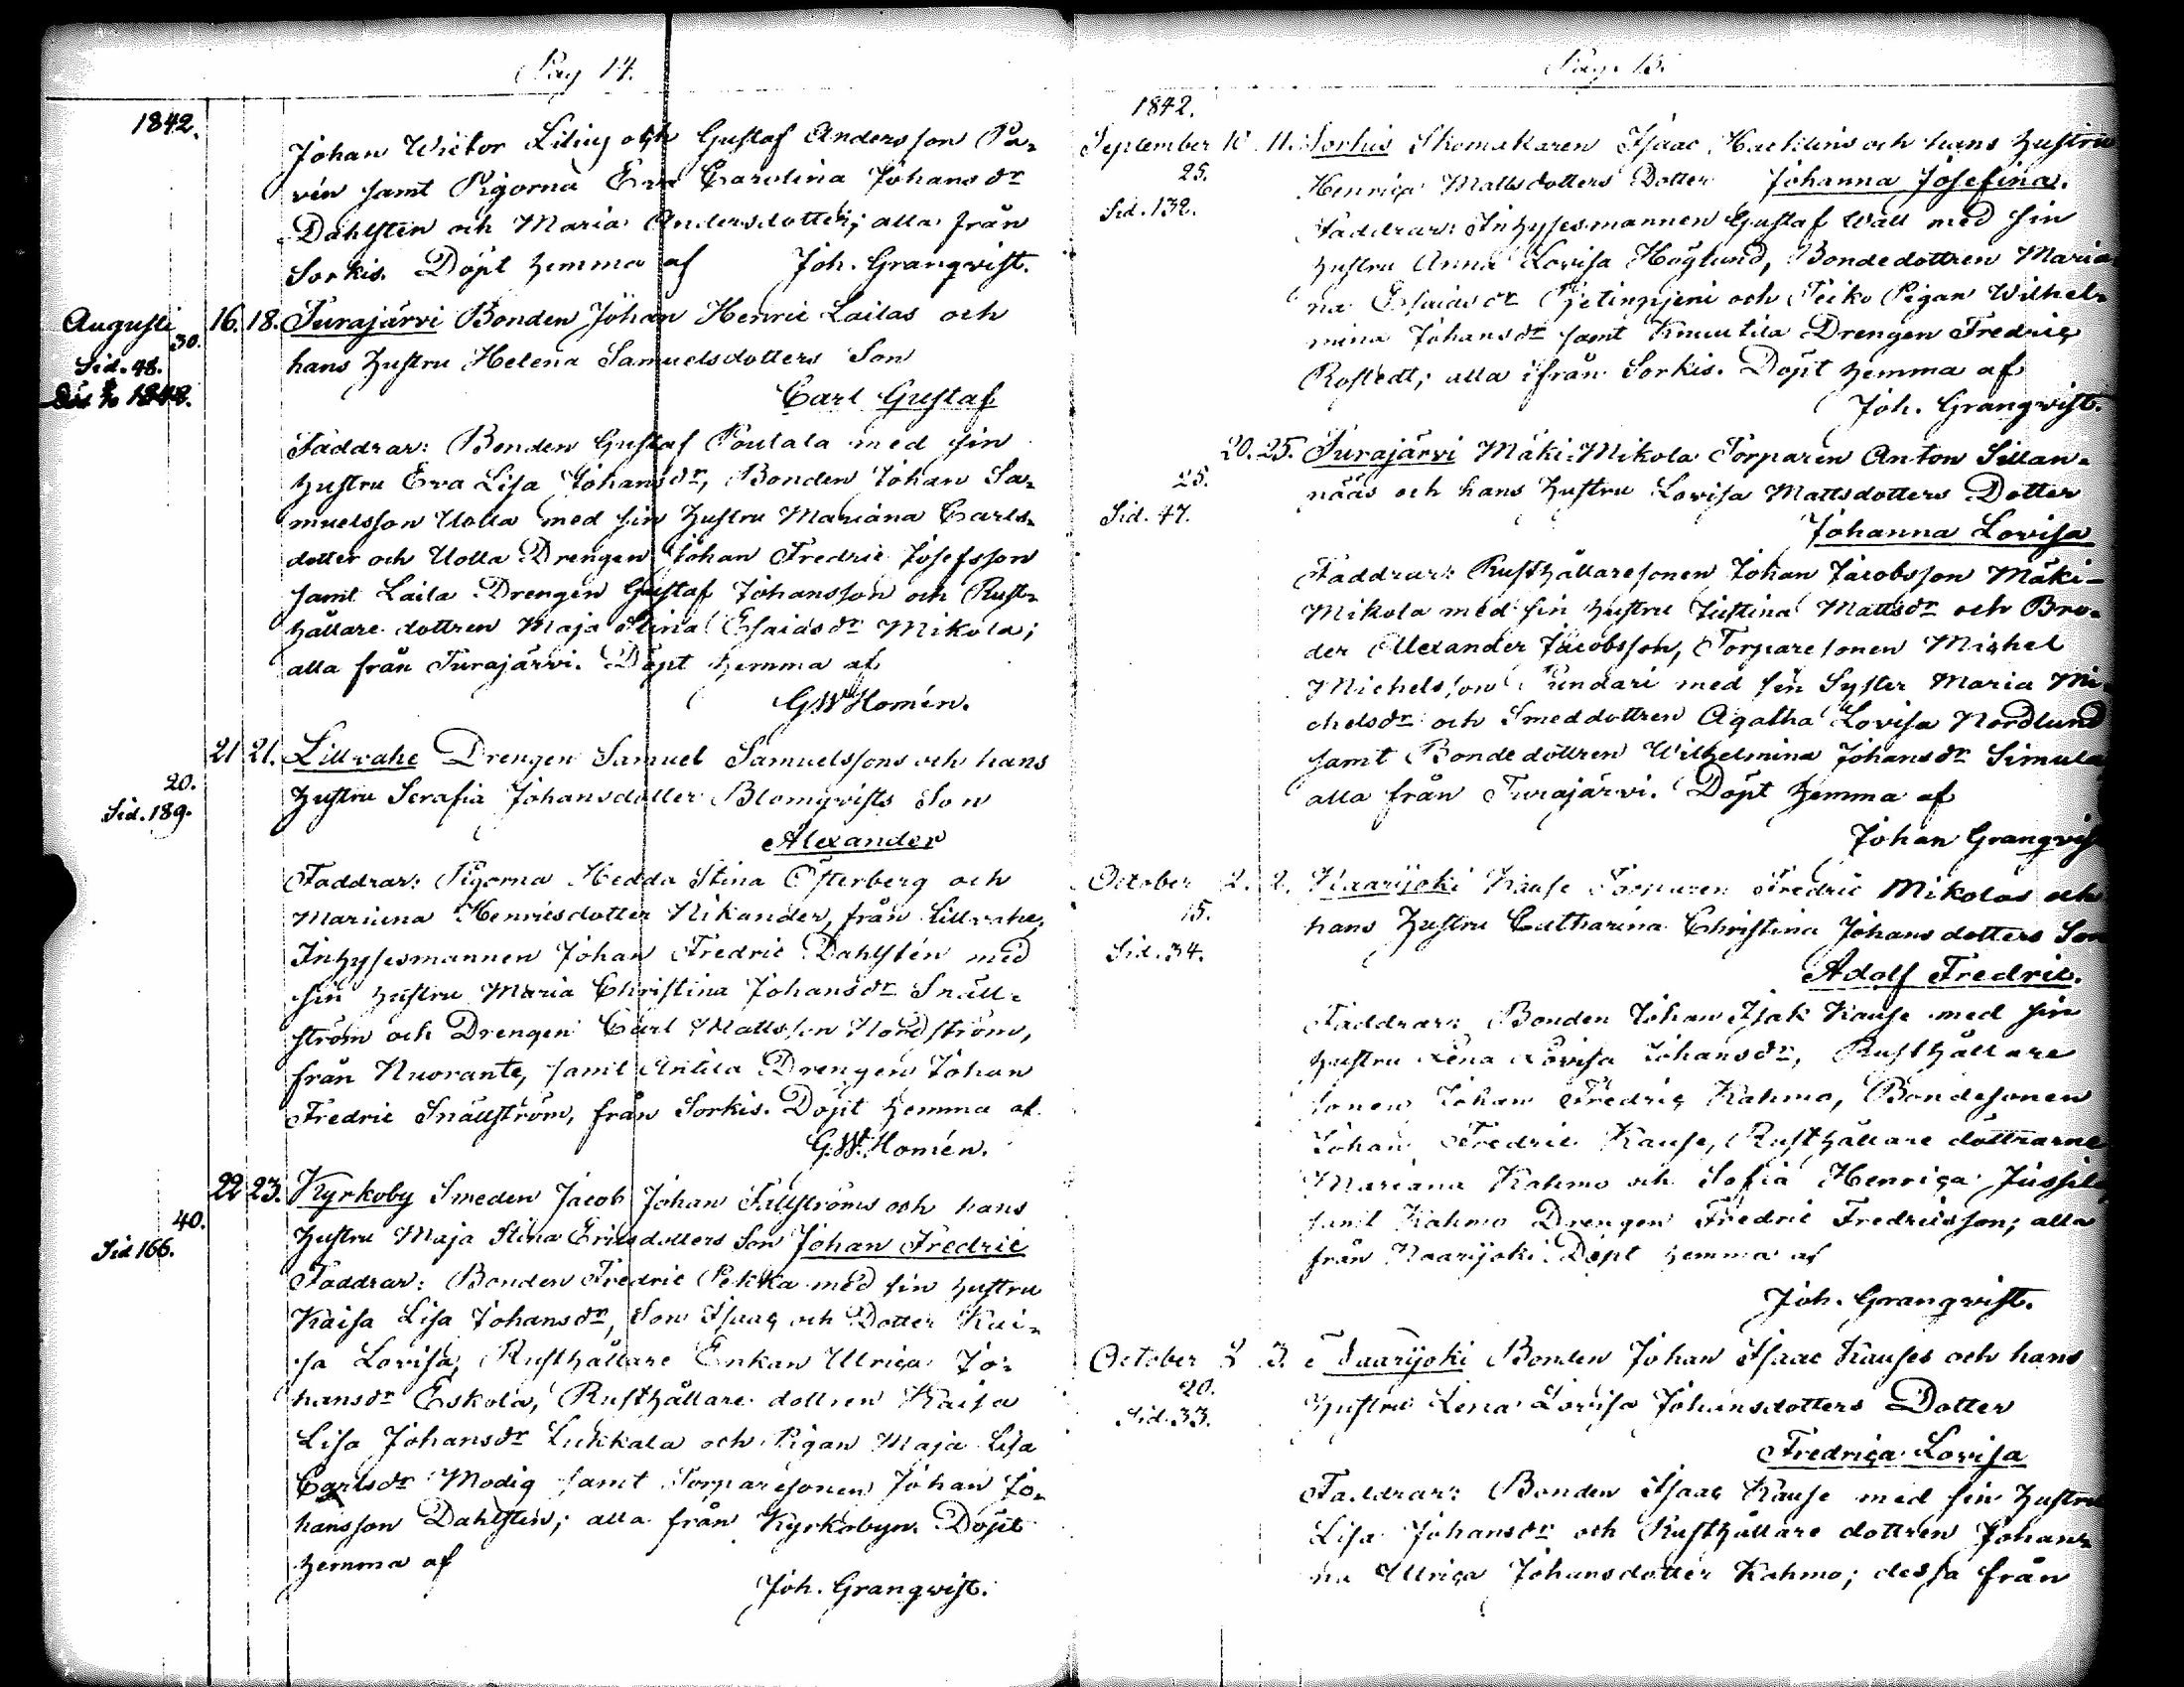 Pag 14.
1842.
Johan Wictor Lilius och Gustaf Andersson Pa-
vén samt Pigorna Eva Carolina Johansdr
Dahlstén och Maria Andersdotter; alla från
Sorkis. Döpt hemma af Joh. Granqvist.
Augusti 16. 18. Turajärvi Bonden Johan Henric Lailas och
30.
hans hustru Helena Samuelsdotters Son
Sid. 48.
1848.
Carl Gustaf
Faddrar: Bonden Gustaf Poutala med sin
hustru Eva Lisa Johansdr, Bonden Johan Sa-
muelsson Uolla med sin hustru Mariana Carls-
dotter och Uolla Drengen Johan Fredric Josefsson
samt Laila Drengen Gustaf Johansson och Rust-
hållare dottren Maja Stina Esaiasdr Mikola;
alla från Turajärvi. Döpt hemma af
G W Homén.
21 21. Lillvahe Drengen Samuel Samuelssons och hans
20.
hustru Serafia Johansdotter Blomqvists Son
Sid. 189.
Alexander
Faddrar: Pigorna Hedda Stina Österberg och
Mariana Henricsdotter Nikander, från Lillvahe,
Inhysesmannen Johan Fredric Dahlstén med
sin hustru Maria Christina Johansdr Snäll-
ström och Drengen Carl Mattsson Nordström,
från Nuorante, samt Antila Drengen Johan
Fredric Snällström, från Sorkis. Döpt hemma af
G. W. Homén.
22 23. Kyrkoby Smeden Jacob Johan Fällströms och hans
40.
hustru Maja Stina Ericsdotters Son Johan Fredric
Sid 166.
Faddrar: Bonden Fredric Pekka med sin hustru
Kaisa Lisa Johansdr, Son Isaac och Dotter Kai-
sa Lovisa, Rusthållare Enkan Ulrica Jo-
hansdr Eskola, Rusthållare dottren Kaisa
Lisa Johansdr Lukkala och Pigan Maja Lisa
Carlsdr Modig samt Torparesonen Johan Jo-
hansson Dahlstén; alla från Kyrkobyn. Döpt
hemma af
Joh. Granqvist.
Pag. 15.
1842.
September 10 11. Sorkis Skomakaren Isaac Hacklins och hans hustru
25.
Henrica Mattsdotters Dotter Johanna Josefina.
Sid. 132.
Faddrar: Inhysesmannen Gustaf Wall med sin
hustru Anna Lovisa Höglund, Bondedottren Maria-
na Esaiasdr och Teiko Pigan Wilhel-
mina Johansdr samt Knuutila Drengen Fredric
Rostedt; alla ifrån Sorkis. Döpt hemma af
Joh. Granqvist.
20. 25. Turajärvi Mäki-Mikola Torparen Anton Sillan-
25.
nääs och hans hustru Lovisa Mattsdotters Dotter
Sid. 47.
Johanna Lovisa
Faddrar: Rusthållaresonen Johan Jacobsson Mäki-
Mikola med sin hustru Justina Mattsdr och Bro-
der Alexander Jacobsson, Torparesonen Michel
Michelsson Pundari med sin Syster Maria Mi-
chelsdr och Smeddottren Agatha Lovisa Nordlund
samt Bondedottren Wilhelmina Johansdr Simula
alla från Turajärvi. Döpt hemma af
Johan Granqvist
October 2. 2. Naarijoki Kause Torparen Fredric Mikolas och
15.
hans hustru Catharina Christina Johansdotters Son
Sid. 34.
Adolf Fredric.
Faddrar: Bonden Johan Isak Kause med sin
hustru Lena Lovisa Johansdr, Rusthållare
sonen Johan Fredric Kahmo, Bondesonen
Johan Fredric Kause, Rusthållare döttrarne
Mariana Kahmo och Sofia Henrica Jussila,
samt Kahmo Drengen Fredric Fredricsson; alla
från Naarijoki. Döpt hemma af
Joh. Granqvist.
October 3 3. Naarijoki Bonden Johan Isaac Kauses och hans
20.
hustru Lena Lovisa Johansdotters Dotter
Sid. 33.
Fredrica Lovisa
Faddrar: Bonden Isaac Kause med sin hustru
Lisa Johansdr och Rusthållare dottren Johan-
na Ulrica Johansdotter Kahmo; dessa från